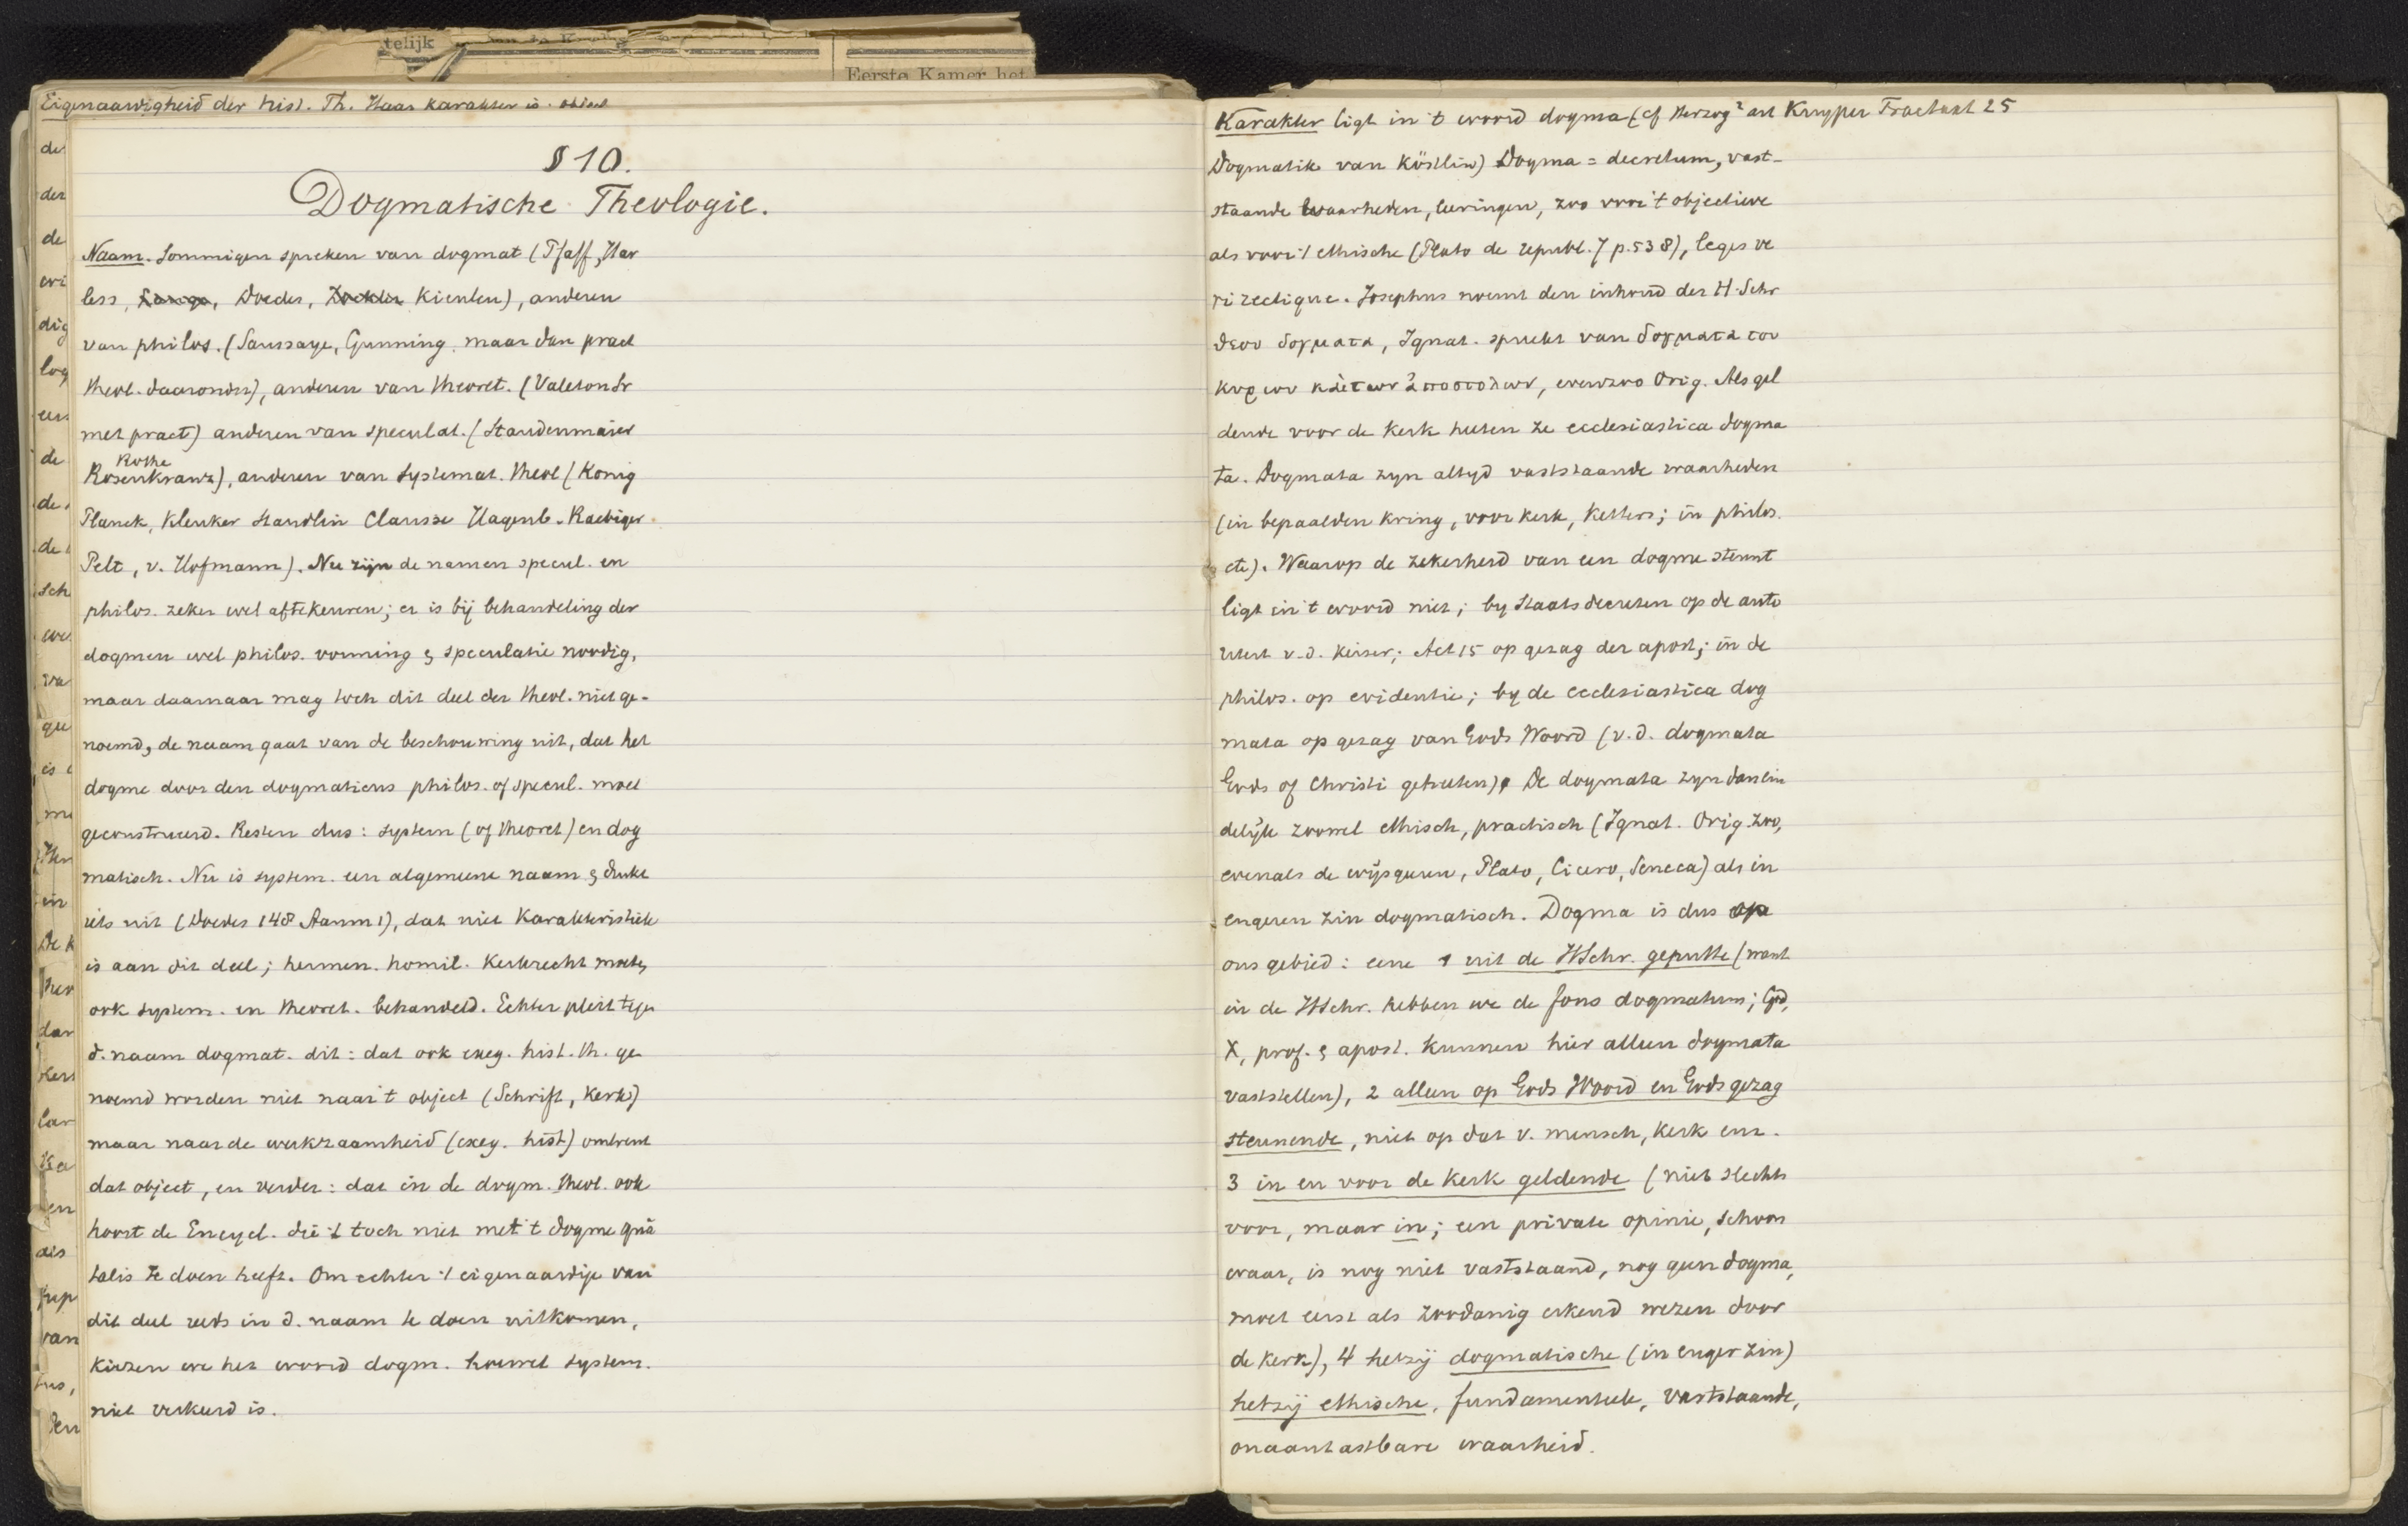 telijk
Eerste Kamer het
Eigenaardigheid der hist. Th. Haar karakter is
de
der
de
dig
log
de
de
de
sch
va
is
in
De k
dar
lar
en
als
van
den
§ 10.
Dogmatische Theologie.
Naam. Sommigen spreken van dogmat (Pfaff, Har
less, Lange, Doedes, Zöckler Kienlen), anderen
van philos. (Saussaye, Gunning, maar dan pract
theol. daaronder), anderen van theoret. (Valeton Sr
met pract) anderen van speculat. (Staudenmaier
Rothe
Rosenkranz), anderen van systemat. theol (König
Planck, Kleuker Staudlin Clarisse Hagenb. Raebiger
Pelt, v. Hofmann). Nu zijn de namen specul. en
philos. zeker wel aftekeuren; er is bij behandeling der
dogmen wel philos. vorming & speculatie noodig,
maar daarnaar mag toch dit deel der theol. niet ge-
noemd, de naam gaat van de beschouwing uit, dat het
dogme door den dogmaticus philos. of specul. moet
geconstrueerd. Resten dus: system (of theoret) en dog
matisch. Nu is system. een algemeene naam & drukt
iets uit (Doedes 148 Aanm 1), dat niet karakteristiek
is aan dit deel; hermen. homil. Kerkrecht moeten
ook system. en theoret. behandeld. Echter pleit tegen
d. naam dogmat. dit: dat ook exeg. hist. th. ge
noemd worden niet naar 't object (Schrift, Kerk)
maar naar de werkzaamheid (exeg. hist) omtrent
dat object, en verder: dat in de dogm. theol. ook
hoort de Encycl. die 't toch niet met 't dogme quâ
talis te doen heeft. Om echter 't eigenaardige van
dit deel reeds in d. naam te doen uitkomen,
kiezen we het woord dogm. hoewel system.
niet verkeerd is.
Karakter ligt in 't woord dogma (cf Herzog² art Kuyper Tractaat 25
Dogmatik van Köstlin) Dogma = decretum, vast-
staande waarheden, leeringen, zoo voor 't objectieve
als voor 't ethische (Plato de republ. 7 p. 538), leges ve
ri rectique. Josephus noemt den inhoud der H. Schr
θεου δογματα, Ignat. spreekt van δογματα του
κυριου και των ἀποστολων, evenzoo Orig. Als gel
dende voor de Kerk heeten ze ecclesiastica dogma
ta. Dogmata zyn altyd vaststaande waarheden
(in bepaalden kring, voor kerk, ketters; in philos.
etc). Waarop de zekerheid van een dogme steunt
ligt in 't woord niet; by Staatsdecreten op de auto
riteit v. d. keizer; Act 15 op gezag der apost; in de
philos. op evidentie; by de ecclesiastica dog
mata op gezag van Gods Woord (v.d. dogmata
Gods of Christi geheeten). De dogmata zyn dan ein
delijk zoowel ethisch, practisch (Ignat. Orig. zoo,
evenals de wijsgeeren, Plato, Cicero, Seneca) als in
engeren zin dogmatisch. Dogma is dus op
ons gebied: eene 1 uit de HSchr. geputte (want
in de HSchr. hebben we de fons dogmatum; God,
X, prof. & apost. kunnen hier alleen dogmata
vaststellen), 2 alleen op Gods Woord en Gods gezag
steunende, niet op dat v. mensch, kerk enz.
3 in en voor de kerk geldende (niet slechts
voor, maar in; een private opinie, schoon
waar, is nog niet vaststaand, nog geen dogma,
moet eerst als zoodanig erkend wezen door
de kerk), 4 hetzij dogmatische (in enger zin)
hetzij ethische, fundamenteele, vaststaande,
onaantastbare waarheid.